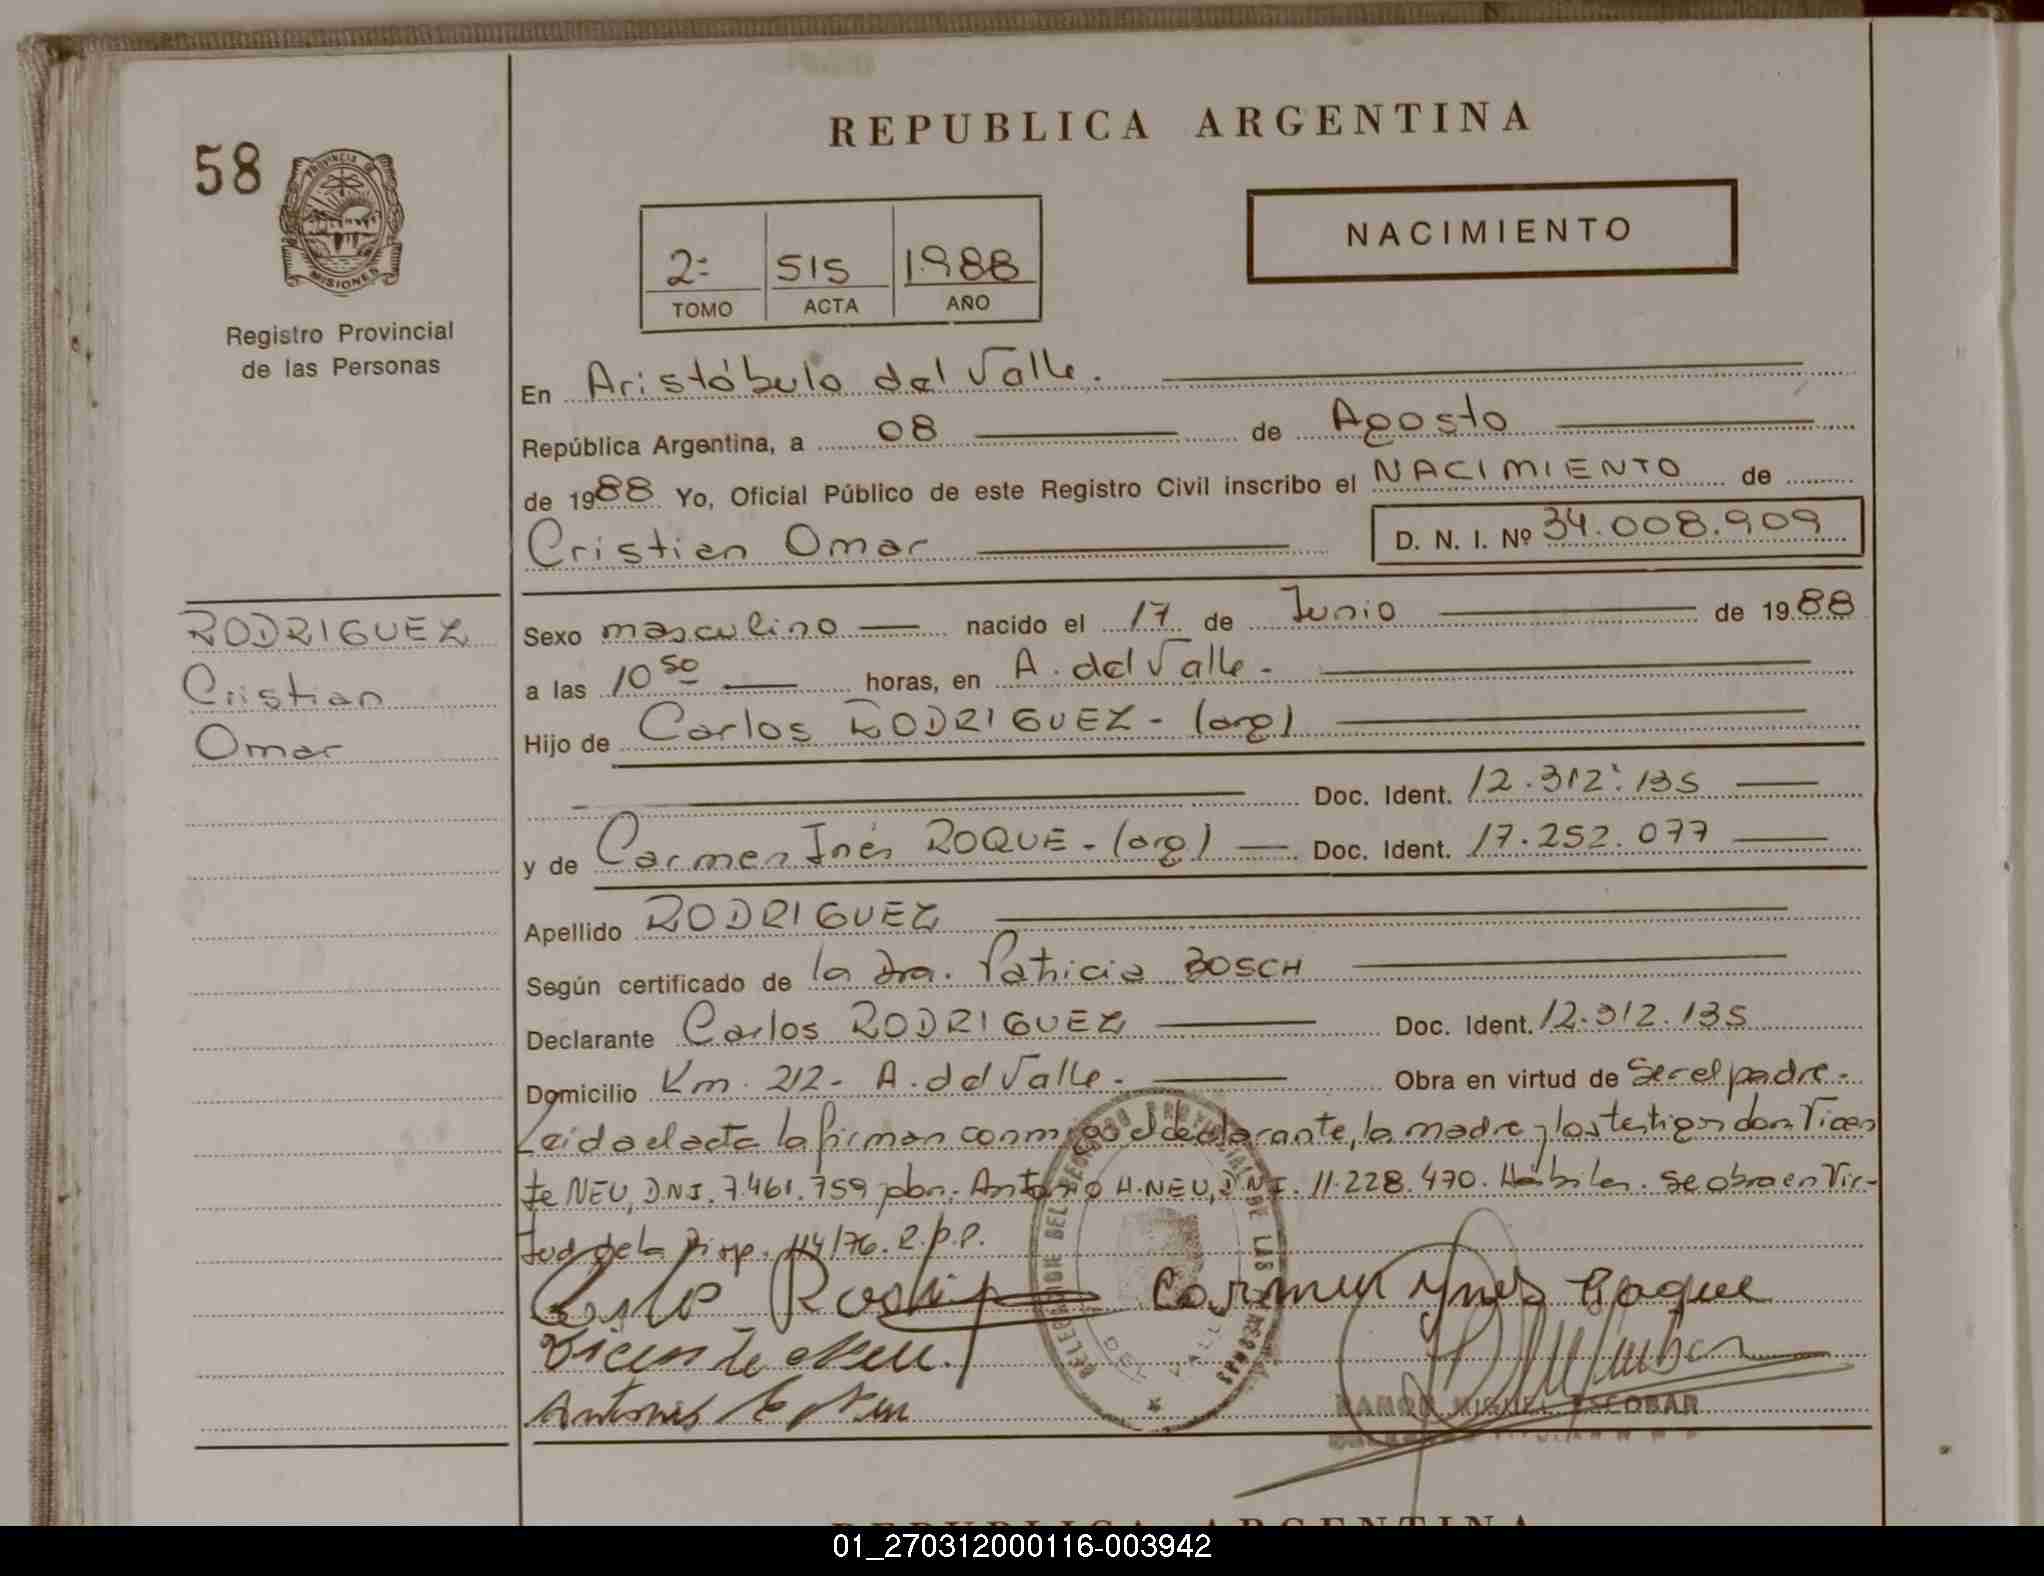 REPUBLICA ARGENTINA
58
PROVINCIA DE
MISIONES
Registro Provincial
de las Personas
NACIMIENTO
2º 515 1988
TOMO ACTA AÑO
En Aristóbulo del Valle.
República Argentina, a 08 de Agosto
de 1988 Yo, Oficial Público de este Registro Civil inscribo el NACIMIENTO de
Cristian Omar D. N. I. Nº 34.008.909
RODRIGUEZ
Cristian
Omar
Sexo masculino nacido el 17 de Junio de 1988
a las 10 50 horas, en A. del Valle -
Hijo de Carlos RODRIGUEZ - (arg)
Doc. Ident. 12.312.135
y de Carmen Inés ROQUE - (arg) Doc. Ident. 17.252.077
Apellido RODRIGUEZ
Según certificado de la Dra. Patricia BOSCH
Declarante Carlos RODRIGUEZ Doc. Ident. 12.312.135
Domicilio Km. 212 - A. del Valle - Obra en virtud de Ser el padre -
Leida el acta la firman conmigo el declarante, la madre y los testigos don Vicen
te NEU, D.N.I. 7.461.759 y don Antonio H. NEU, D.N.I. 11.228.470. Hábiles. Se obra en Vir-
tud de la Disp. 114/76. R.p.p.
Carlos Carmen Ynes Roque
Vicente Neu
Antonio Neu
RAMON MIGUEL ESCOBAR
REPUBLICA ARGENTINA
01_270312000116-003942